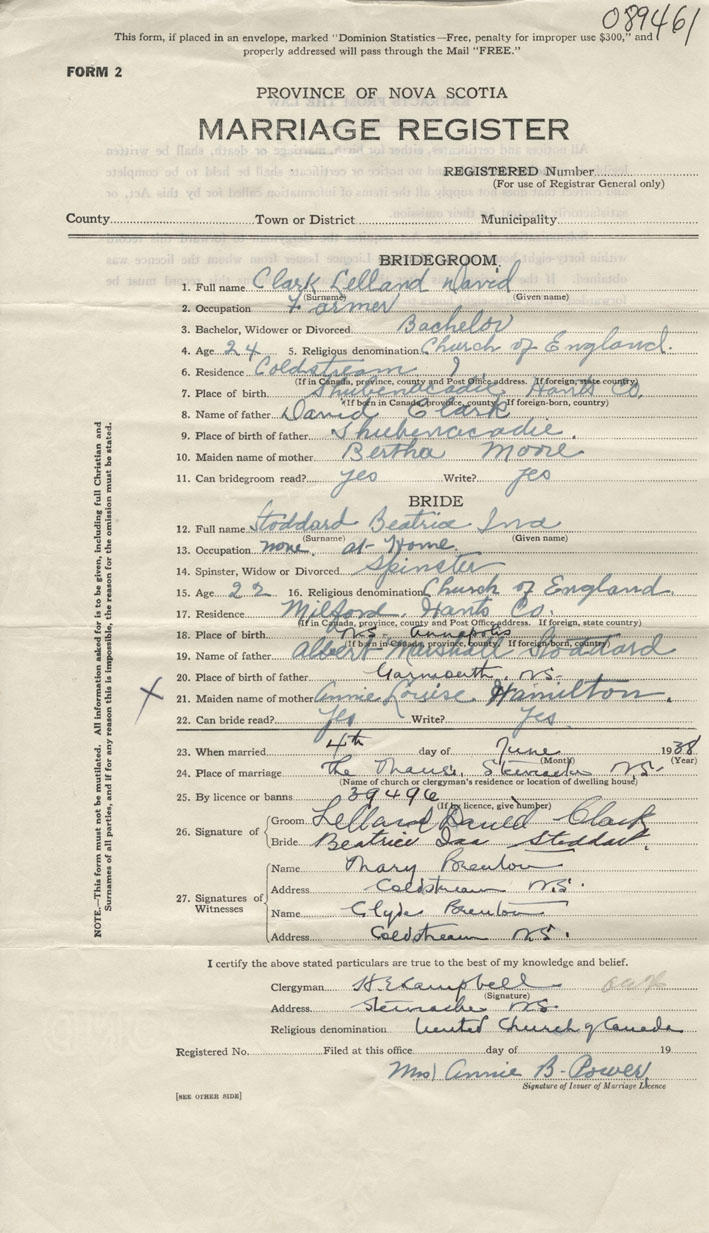 089461
This form, if placed in an envelope, marked "Dominion Statistics—Free, penalty for improper use $300," and
properly addressed will pass through the Mail "FREE."
FORM 2
PROVINCE OF NOVA SCOTIA
MARRIAGE REGISTER
REGISTERED Number
(For use of Registrar General only)
County Town or District Municipality
BRIDEGROOM.
1. Full name Clark Lelland David
(Surname) (Given name)
2. Occupation Farmer
3. Bachelor, Widower or Divorced Bachelor
4. Age 24 5. Religious denomination Church of England.
6. Residence Coldstream
(If in Canada, province, county and Post Office address. If foreign, state country)
7. Place of birth Shubenacadie Hants Co.
(If born in Canada, province, county. If foreign-born, country)
8. Name of father David Clark
9. Place of birth of father Shubenacadie.
10. Maiden name of mother Bertha Moore
11. Can bridegroom read? yes Write? yes
BRIDE
12. Full name Stoddard Beatrice Ina
(Surname) (Given name)
13. Occupation none. at Home.
14. Spinster, Widow or Divorced Spinster
15. Age 22 16. Religious denomination Church of England.
17. Residence Milford. Hants Co.
(If in Canada, province, county and Post Office address. If foreign, state country)
18. Place of birth N.S. Annapolis
(If born in Canada, province, county. If foreign-born, country)
19. Name of father Albert Marshall Stoddard
20. Place of birth of father Yarmouth. N.S.
21. Maiden name of mother Annie Louise Hamilton.
22. Can bride read? Yes Write? Yes.
23. When married 4th day of June 1938
(Month) (Year)
24. Place of marriage The Manse, Stewiacke N.S.
(Name of church or clergyman's residence or location of dwelling house)
25. By licence or banns 39496
(If by licence, give number)
26. Signature of
Groom Lelland David Clark
Bride Beatrice Ina Stoddart.
27. Signatures of Witnesses
Name Mary Brenton
Address Coldstream N.S.
Name Clyde Brenton
Address Coldstream N.S.
I certify the above stated particulars are true to the best of my knowledge and belief.
Clergyman H.E. Campbell
(Signature)
Address Stewiacke N.S.
Religious denomination United Church of Canada
Registered No. Filed at this office day of 19
Mrs Annie B. Power
Signature of Issuer of Marriage Licence
[SEE OTHER SIDE]
NOTE.—This form must not be mutilated. All information asked for is to be given, including full Christian and
Surnames of all parties, and if for any reason this is impossible, the reason for the omission must be stated.